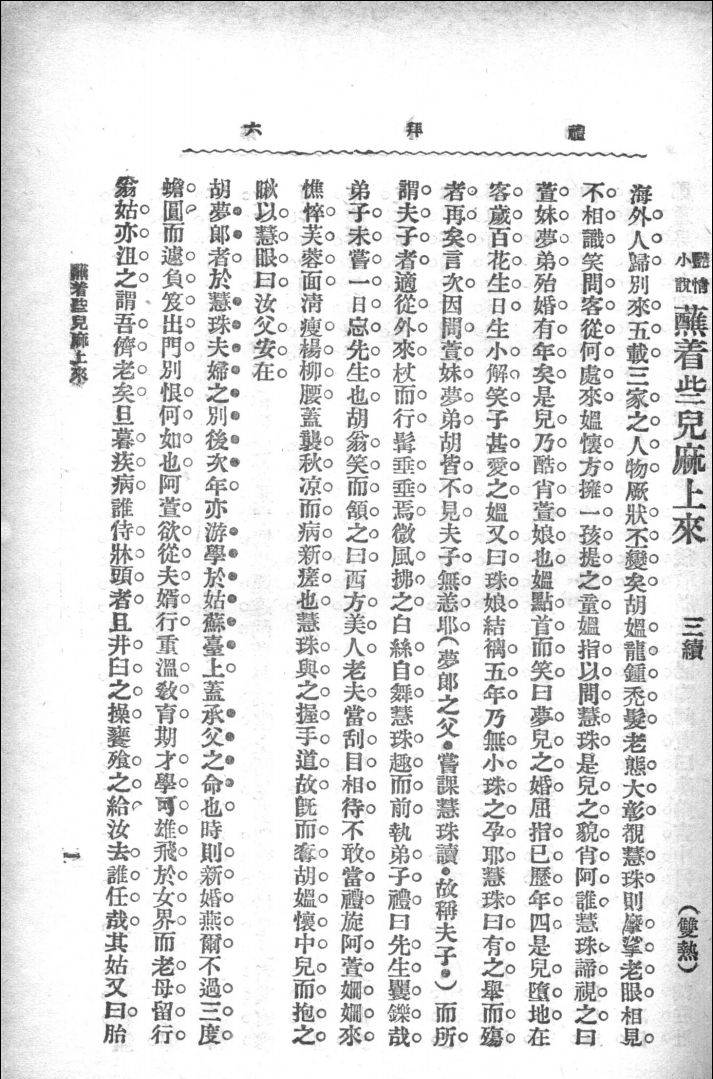 禮拜六
豔情小說 蘸着些兒麻上來 三續 (雙熱)
海外人歸別來五載三家之人物厥狀不變矣胡媼龍鍾禿髮老態大彰覩慧珠則摩挲老眼相見
不相識笑問客從何處來媼懷方擁一孩提之童媼指以問慧珠是兒之貌肖阿誰慧珠諦視之曰
萱妹夢弟殆婚有年矣是兒乃酷肖萱娘也媼點首而笑曰夢兒之婚屈指已歷年四是兒墮地在
客歲百花生日生小解笑予甚愛之媼又曰珠娘結褵五年乃無小珠之孕耶慧珠曰有之舉而殤
者再矣言次因問萱妹夢弟胡皆不見夫子無恙耶(夢郎之父。嘗課慧珠讀。故稱夫子。)而所
謂夫子者適從外來杖而行髯垂垂焉微風拂之白絲自舞慧珠趨而前執弟子禮曰先生矍鑠哉
弟子未嘗一日忘先生也胡翁笑而領之曰西方美人老夫當刮目相待不敢當禮旋阿萱姍姍來
憔悴芙蓉面清瘦楊柳腰蓋襲秋凉而病新瘥也慧珠與之握手道故旣而奪胡媼懷中兒而抱之
瞅以慧眼曰汝父安在
胡夢郎者於慧珠夫婦之別後次年亦游學於姑蘇臺上蓋承父之命也時則新婚燕爾不過三度
蟾圓而遽負笈出門別恨何如也阿萱欲從夫婿行重溫敎育期才學可雄飛於女界而老母留行
翁姑亦沮之謂吾儕老矣旦暮疾病誰侍牀頭者且井臼之操饔飧之給汝去誰任哉其姑又曰胎
蘸着些兒麻上來
一